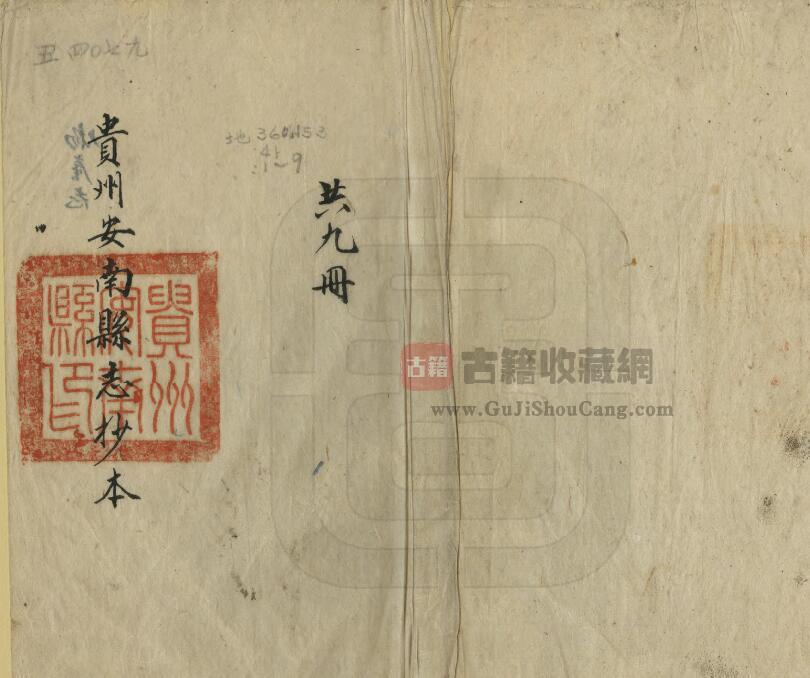 丑四〇七九
地 360.153
41
1~9
共九冊
貴州安南縣志抄本
貴州安南縣印
古籍
古籍收藏網
www.GuJiShouCang.com